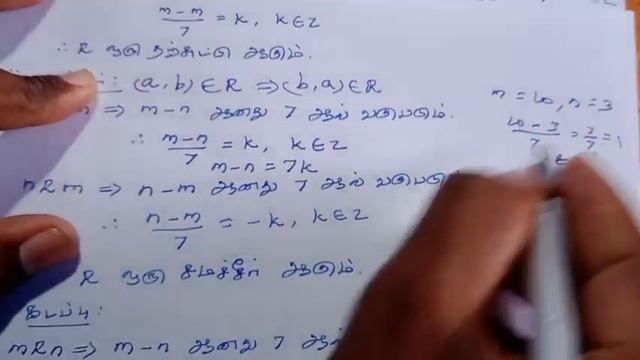 m-m/7 = k, k∈Z
∴ R ஒரு தற்சுட்டு ஆகும்.
: (a, b) ∈R ⇒ (b, a) ∈R
n ⇒ m-n ஆனது 7 ஆல் வகுபடும்.
∴ m-n/7 = k, k∈Z
m-n = 7k
nRm ⇒ n-m ஆனது 7 ஆல்
∴ n-m/7 = -k, k∈Z
R ஒரு சமச்சீர் ஆகும்.
கடப்பு:
mRn ⇒ m-n ஆனது 7 ஆல்
m = 10, n = 3
10-3/7 = 7/7 = 1